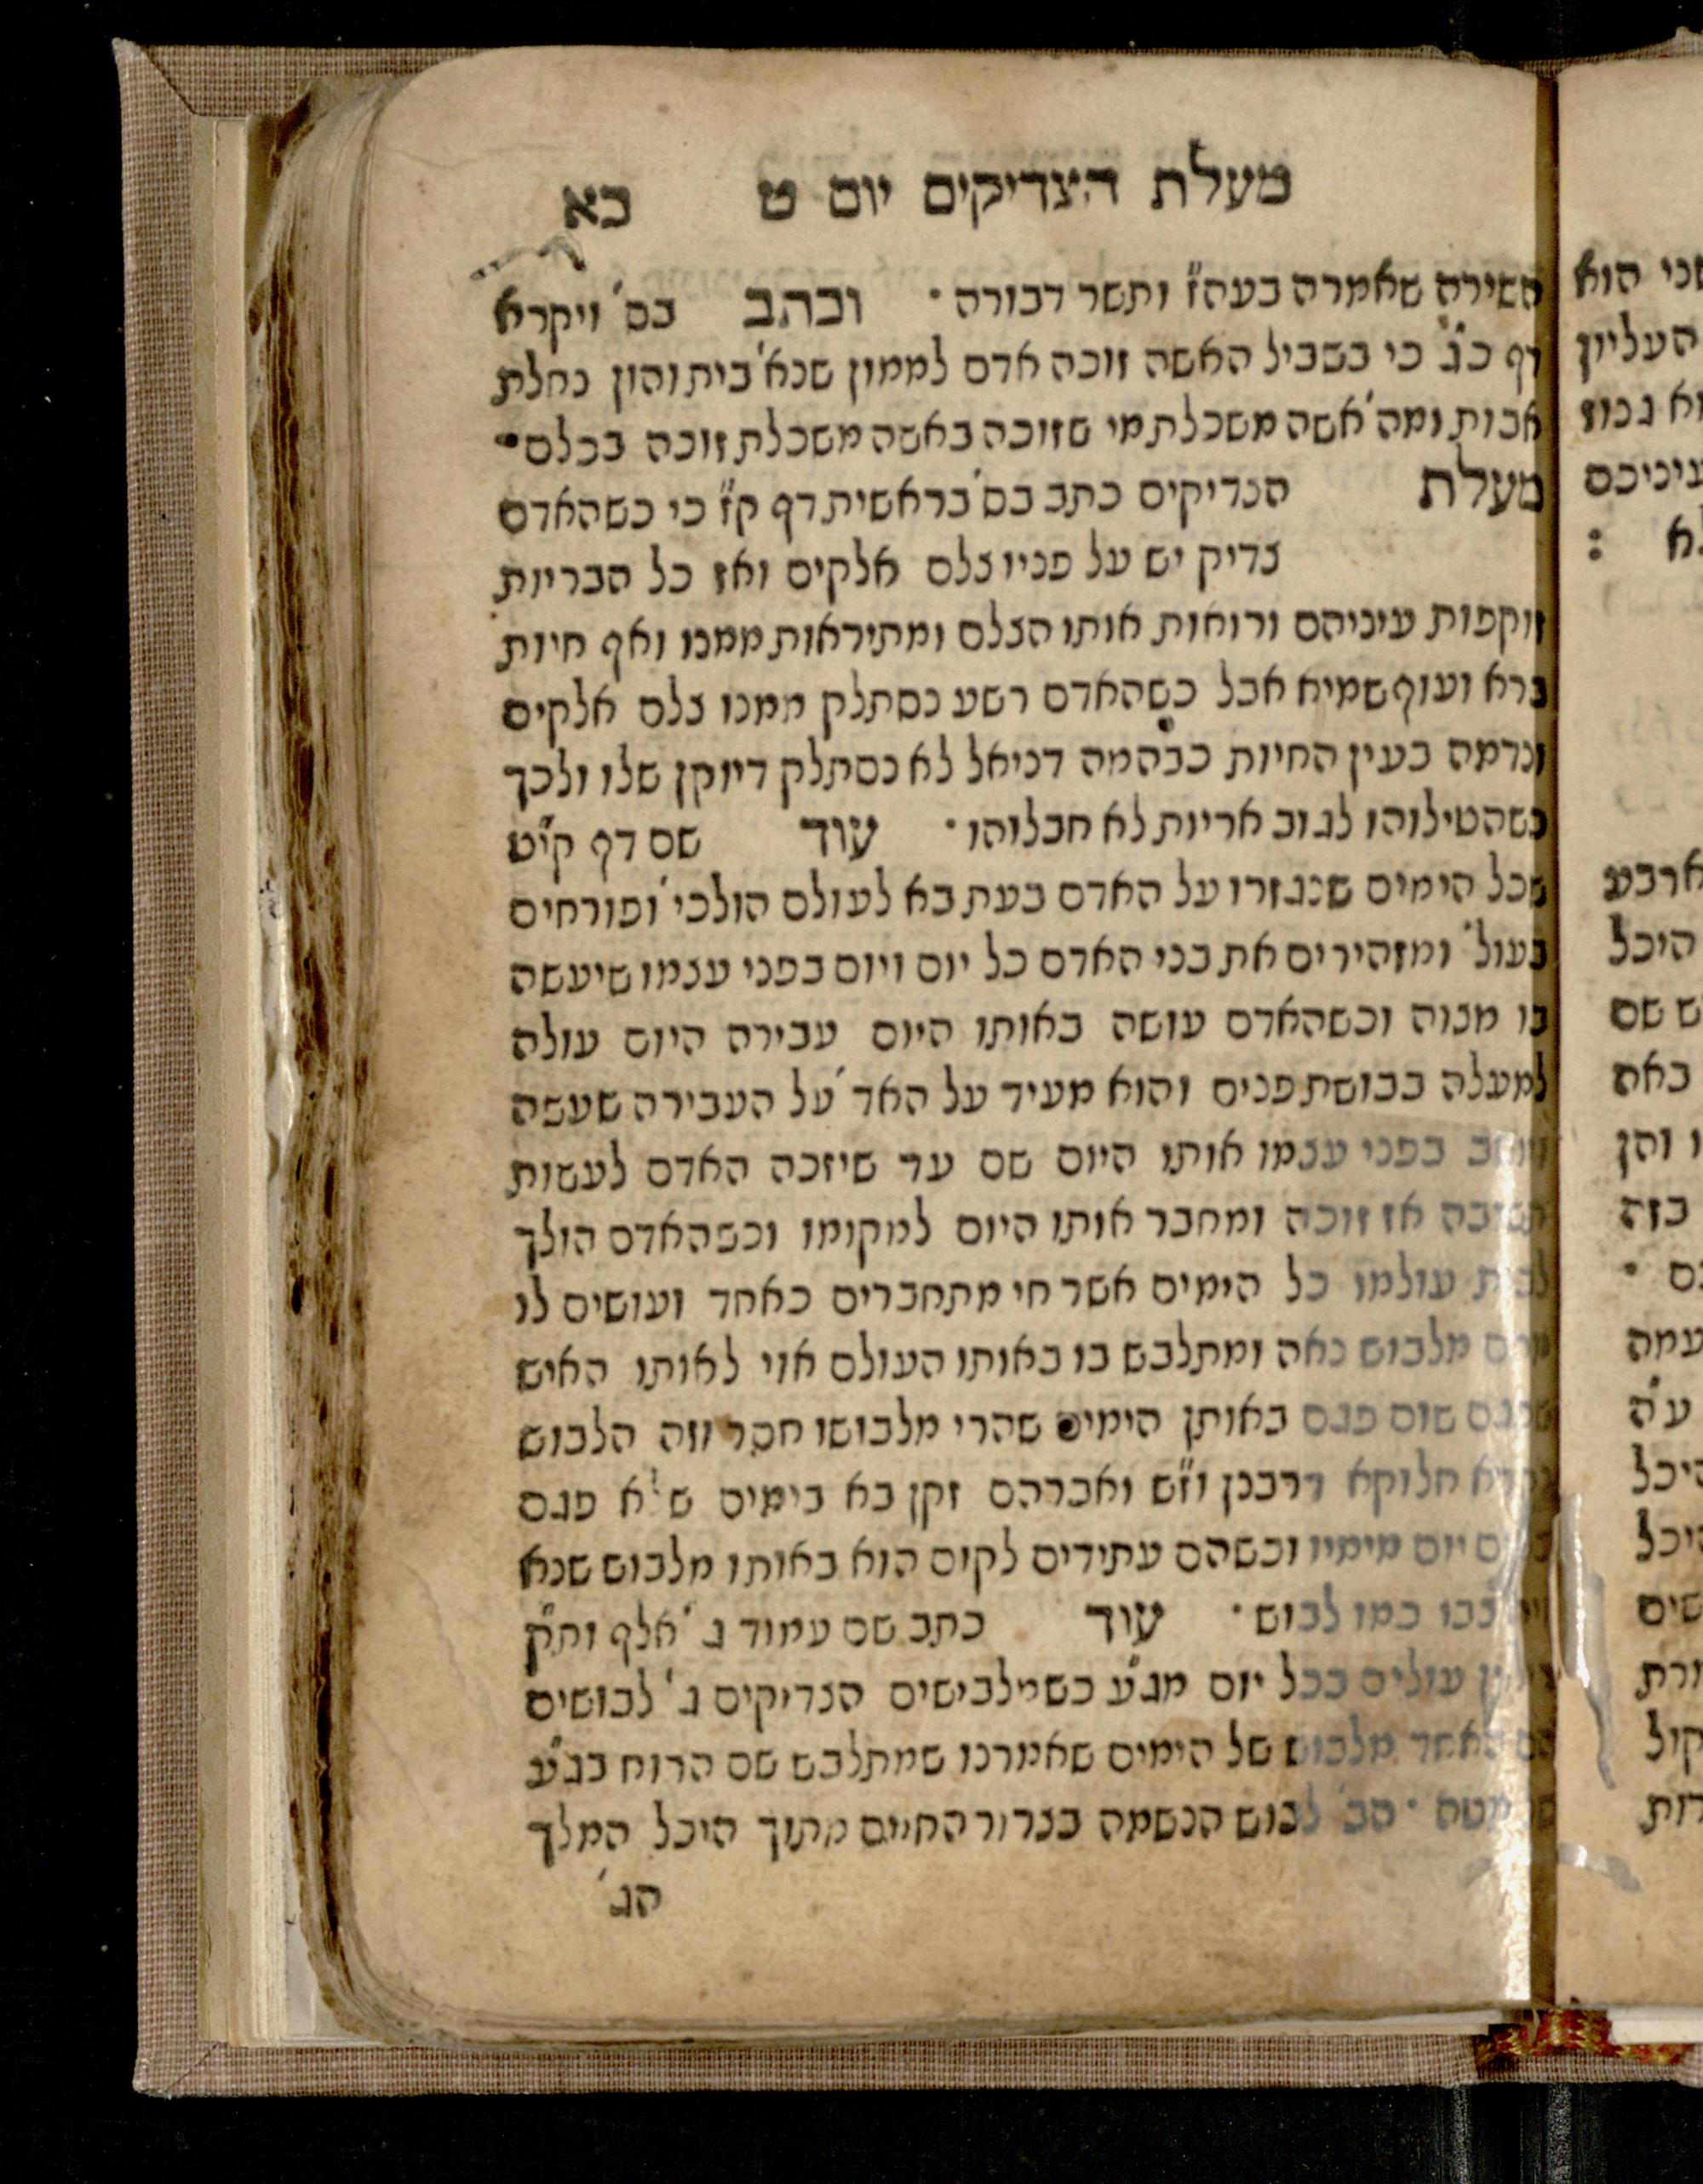 מעלת הצדיקים יום ט כא
השירה שאמרה בעה"ז ותשר דבורה · וכתב בס' ויקרא
דף כ"ג כי בשביל האשה זוכה אדם לממון שנא' בית והון נחלת
אבות ומה' אשה משכלת מי שזוכה באשה משכלת זוכה בכלם ·
מעלת הצדיקים כתב בס' בראשית דף ק"ז כי כשהאדם
צדיק יש על פניו צלם אלקים ואז כל הבריות
זוקפות עיניהם ורואות אותו הצלם ומתיראות ממנו ואף חיות
ברא ועוף שמיא אבל כשהאדם רשע נסתלק ממנו צלם אלקים
ונדמה בעין החיות כבהמה דניאל לא נסתלק דיוקן שלו ולכך
כשהטילוהו לגוב אריות לא חבלוהו · עוד שם דף קי"ט
מכל הימים שנגזרו על האדם בעת בא לעולם הולכי' ופורחים
בעול' ומזהירים את בני האדם כל יום ויום בפני עצמו שיעשה
בו מצוה וכשהאדם עושה באותו היום עבירה היום עולה
למעלה בבושת פנים והוא מעיד על האד' על העבירה שעשה
בפני עצמו אותו היום שם עד שיזכה האדם לעשות
תשובה אז זוכה ומחבר אותו היום למקומו וכשהאדם הולך
לבית עולמו כל הימים אשר חי מתחברים כאחד ועושים לו
מהם מלבוש נאה ומתלבש בו באותו העולם אוי לאותו האיש
שפגם שום פגם באותן הימים שהרי מלבושו חסר וזה הלבוש
נקרא חלוקא דרבנן וז"ש ואברהם זקן בא בימים שלא פגם
בשום יום מימיו וכשהם עתידים לקום הוא באותו מלבוש שנא
ויתיצבו כמו לבוש · עוד כתב שם עמוד ג' אלף ות"ק
עולים בכל יום מג"ע כשמלבישים הצדיקים ג' לבושים
האחד מלבוש של הימים שאמרנו שמתלבש שם הרוח בג"ע
של מטה · הב' לבוש הנשמה בצרור החיים מתוך היכל המלך
הג'
שני הוא
העליון
וא גכוז
עיניכם
:
ארבע
היכל
ש שם
באת
ו והן
בזה
עמה
ע"ה
היכל
היכל
שים
ורת
קול
רות